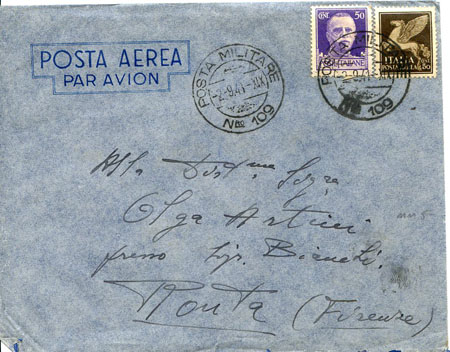 POSTA AEREA
PAR AVION
POSTA MILITARE
Nro 109
CENT. 50
POSTE ITALIANE
ITALIA
POSTA AEREA
CENT 50
POSTA MILITARE
Nro 109
Alla Dist.ma Sig.ra
Olga Artini
presso Sig. Bianchi
Ronta (Firenze)